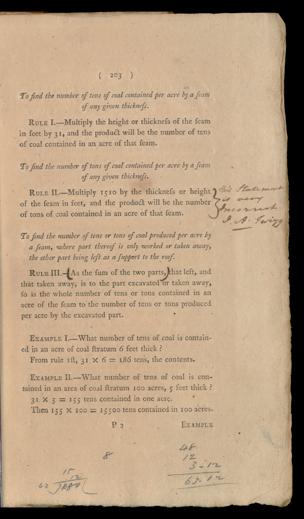 ( 203 )
To find the number of tens of coal contained per acre by a seam
of any given thickness.
RULE I.—Multiply the height or thickness of the seam
in feet by 31, and the product will be the number of tens
of coal contained in an acre of that seam.
To find the number of tons of coal contained per acre by a seam
of any given thickness.
RULE II.—Multiply 1510 by the thickness or height
of the seam in feet, and the product will be the number
of tons of coal contained in an acre of that seam.
this Statement
is very
incorrect
To find the number of tens or tons of coal produced per acre by
a seam, where part thereof is only worked or taken away,
the other part being left as a support to the roof.
RULE III.—(As the sum of the two parts,) that left, and
that taken away, is to the part excavated or taken away,
so is the whole number of tens or tons contained in an
acre of the seam to the number of tens or tons produced
per acre by the excavated part.
EXAMPLE I.—What number of tens of coal is contain-
ed in an acre of coal stratum 6 feet thick ?
From rule 1st, 31 × 6 = 186 tens, the contents.
EXAMPLE II.—What number of tens of coal is con-
tained in an area of coal stratum 100 acres, 5 feet thick ?
31 × 5 = 155 tens contained in one acre.
Then 155 × 100 = 15500 tens contained in 100 acres.
P 2 EXAMPLE
8
48
12
3-12
63.12
15
12
62